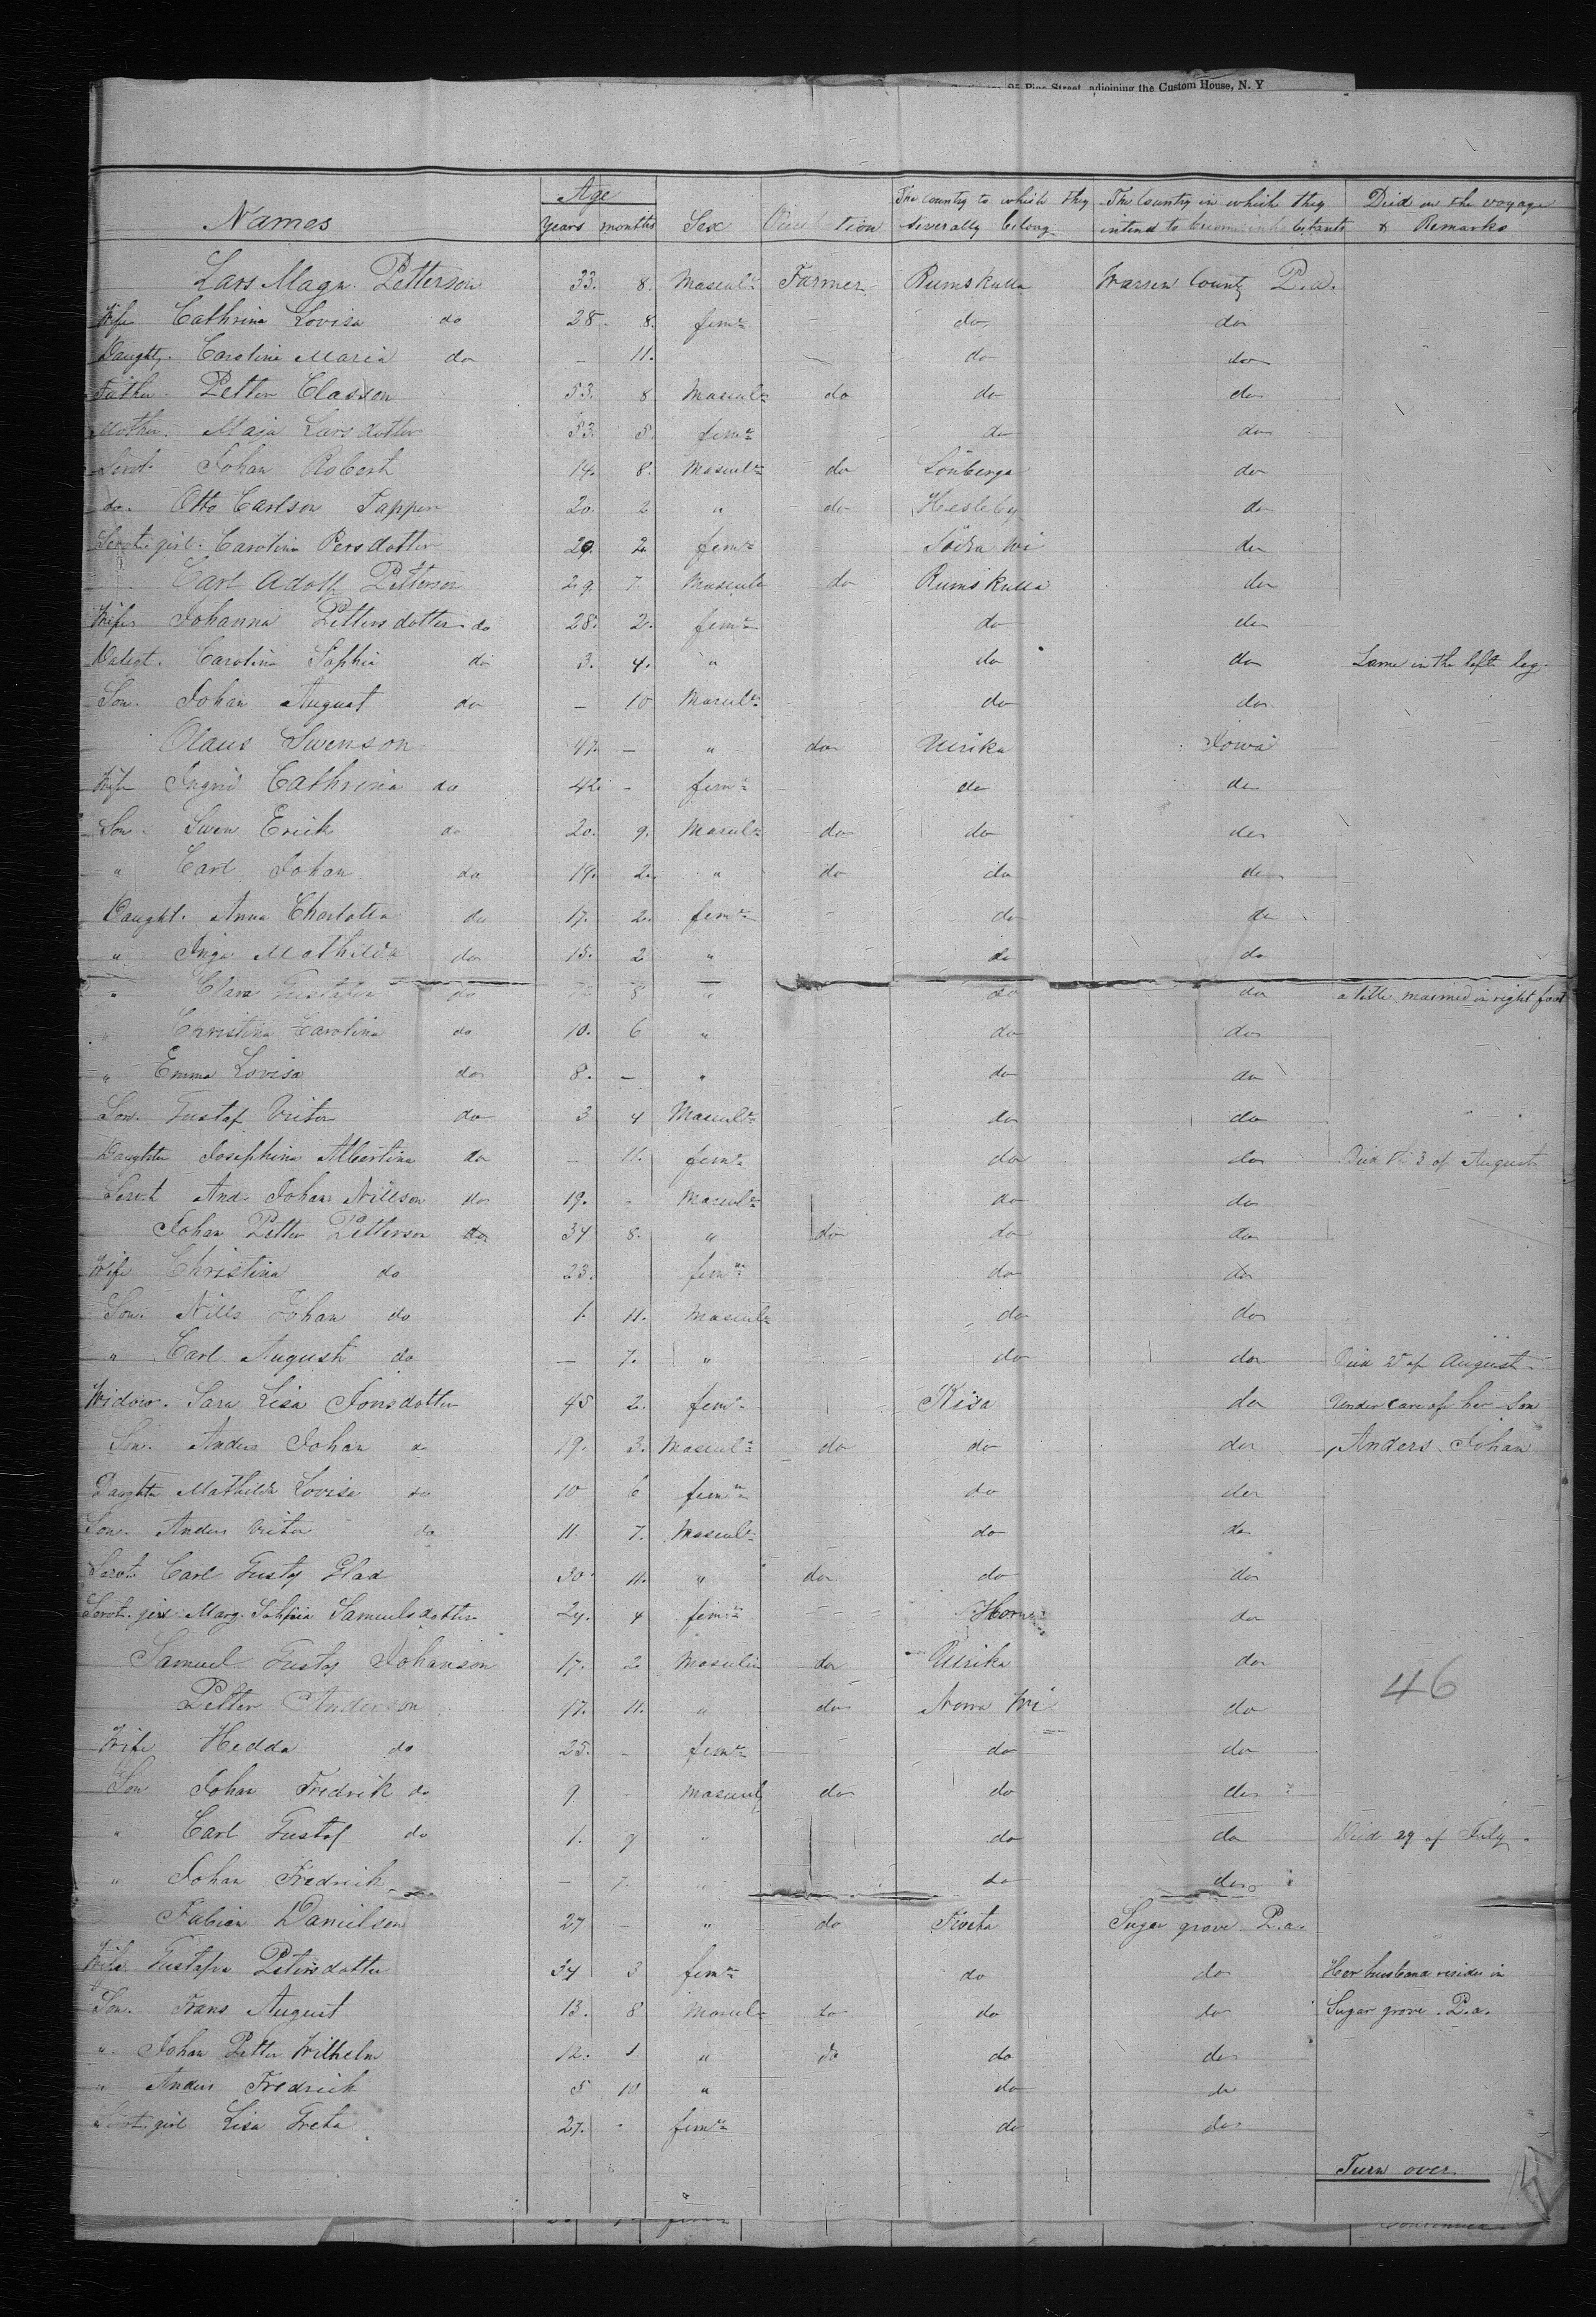 95 Pine Street, adjoining the Custom House, N. Y
Names Age years months Sex The Country to which they severally belong The Country in which they intend to become inhabitants Died on the voyage & Remarks
Lars Magn. Petterson 33. 8. Mascul. Farmer Rumskulla Warren County P.a.
Wife Cathrina Lovisa do 28. 8. fem. do do
Daught. Carolina Maria do – 11. do do
Father Petter Classon 53. 8 Mascul. do do do
Mother. Maja Larsdotter 53. 5. fem. do do
Servt. Johan Robert 14. 8. Mascul. do Lönberga do
do. Otto Carlson Tapper 20. 2 " do Hesleby do
Servt. girl. Carolina Persdotter 29. 2. fem. Södra Wi do
Carl Adolf Petterson 29. 7. Mascul. do Rumskulla do
Wife Johanna Pettersdotter do 28. 2. fem. do do
Daugt. Carolina Sophia do 3. 4. " do do Lame in the left leg.
Son. Johan August do – 10 Mascul. do do
Olaus Swenson 47. – " do Ulrika Iowa
Wife Ingrid Cathrina do 42. - fem. do do
Son. Swen Erick do 20. 9. Mascul. do do do
" Carl Johan do 19. 2. " do do do
Daught. Anna Charlotta do 17. 2. fem. do do
" Inga Mathilda do 15. 2 " do do
" Clara Gustafva do 8 " do do a little maimed in right foot
" Christina Carolina do 10. 6 " do do
" Emma Lovisa do 8. – " do do
Son. Gustaf Victor do 3 4 Mascul. do do
Daughter Josephina Albertina do – 11. fem. do do Died the 3 of August
Servt And. Johan Nillson do 19. - Mascul. do do
Johan Petter Petterson do 34 8. " do do do
Wife Christina do 23. fem. do do
Son. Nills Johan do 1. 11. Mascul. do do
" Carl August do – 7. " do do Died 2 of August.
Widow. Sara Lisa Jonsdotter 45 2. fem. Kisa do Under care of her Son
Son. Anders Johan do 19. 3. Mascul. do do do Anders Johan
Daughter Mathilda Lovisa do 10 6 fem. do do
Son. Anders Victor do 11. 7. Mascul. do do
Servt. Carl Gustaf Glad 30. 11. " do do do
Servt. girl Marg. Sophia Samuelsdotter 24. 4 fem. Horn do
Samuel Gustaf Johanson 17. 2 Masculin do Ulrika do
Petter Anderson 47. 11. " do Norra Wi do 46
Wife Hedda do 25. - fem. do do
Son Johan Fredrik do 9 - Mascul. do do do
" Carl Gustaf do 1. 9 " do do Died 29 of July.
" Johan Fredrick do – 7. " do do
Fabian Danielson 27 – " do Sugar grove P.a.
Wife Gustafva Petersdotter 34 3 fem. do do Her husband resides in
Son. Frans August 13. 8 Mascul. do do do Sugar grove. P.a.
" Johan Petter Wilhelm 12. 1 " do do do
" Anders Fredrick 5 10 " do do
Servt. girl Lisa Greta 27. - fem. do do
Turn over.